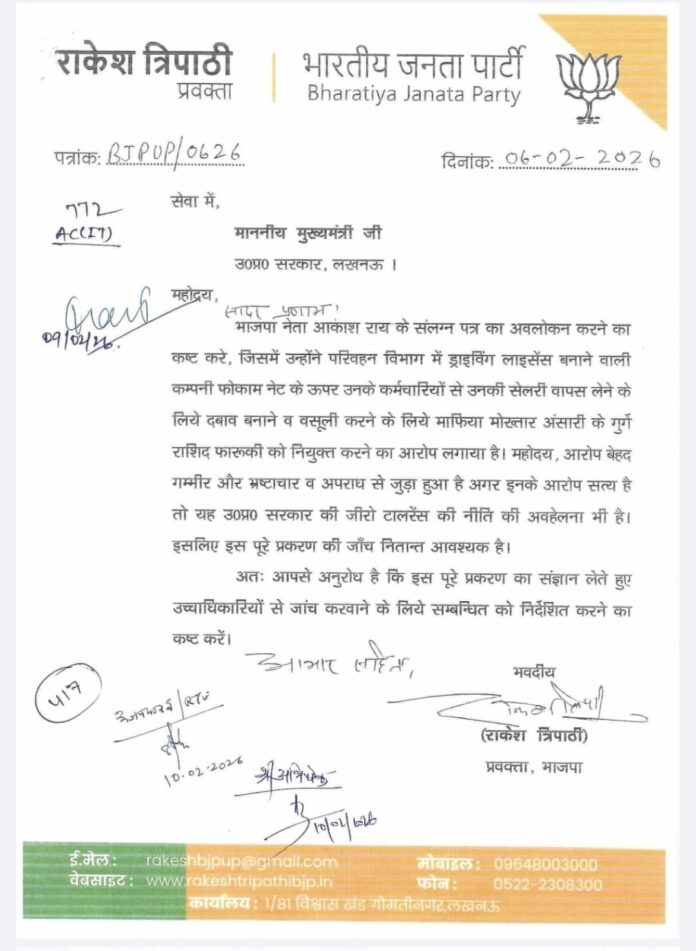 राकेश त्रिपाठी
प्रवक्ता
भारतीय जनता पार्टी
Bharatiya Janata Party
पत्रांक: BJPUP/0626
दिनांक: 06-02-2026
772
AC(IT)
सेवा में,
माननीय मुख्यमंत्री जी
उ0प्र0 सरकार, लखनऊ ।
महोदय,
सादर प्रणाम!
09/02/26.
भाजपा नेता आकाश राय के संलग्न पत्र का अवलोकन करने का
कष्ट करे, जिसमें उन्होंने परिवहन विभाग में ड्राइविंग लाइसेंस बनाने वाली
कम्पनी फोकाम नेट के ऊपर उनके कर्मचारियों से उनकी सेलरी वापस लेने के
लिये दबाव बनाने व वसूली करने के लिये माफिया मोख्तार अंसारी के गुर्गे
राशिद फारूकी को नियुक्त करने का आरोप लगाया है। महोदय, आरोप बेहद
गम्भीर और भ्रष्टाचार व अपराध से जुड़ा हुआ है अगर इनके आरोप सत्य है
तो यह उ0प्र0 सरकार की जीरो टालरेंस की नीति की अवहेलना भी है।
इसलिए इस पूरे प्रकरण की जाँच नितान्त आवश्यक है।
अतः आपसे अनुरोध है कि इस पूरे प्रकरण का संज्ञान लेते हुए
उच्चाधिकारियों से जांच करवाने के लिये सम्बन्धित को निर्देशित करने का
कष्ट करें।
आभार सहित,
भवदीय
417
(राकेश त्रिपाठी)
प्रवक्ता, भाजपा
10-02-2026
श्री अभिषेक
10/02/2026
ई.मेल : rakeshbjpup@gmail.com
वेबसाइट : www.rakeshtripathibjp.in
मोबाइल : 09648003000
फोन : 0522-2308300
कार्यालय : 1/81 विश्वास खंड गोमतीनगर,लखनऊ